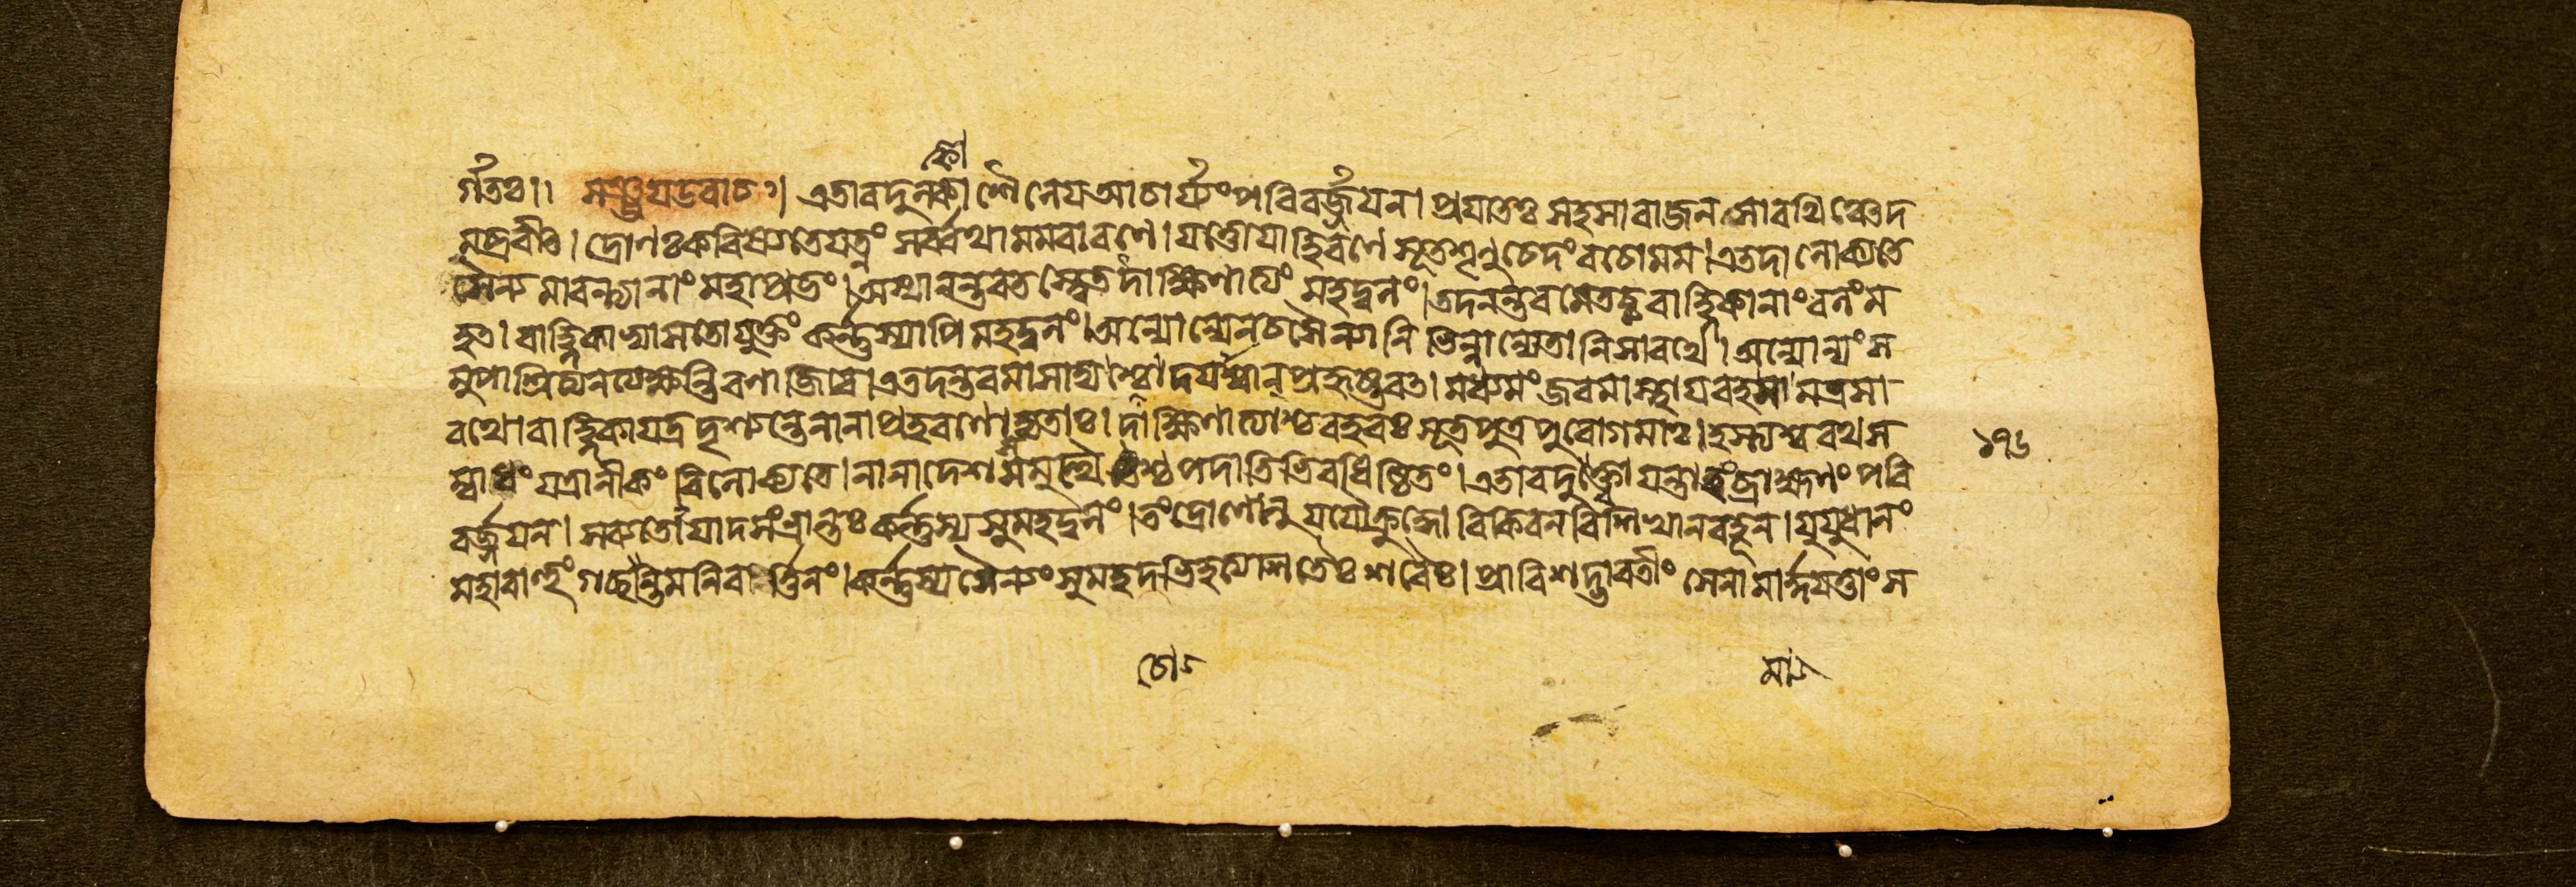 র্গতঃ।। সঞ্জয়উবাচ।। এতাবদুনক্বা শৈনেয়আচার্য্যংপরিবর্জ্জয়ন। প্রয়াতঃ সহসারাজন সারথিঞ্চেদ
মব্রবীৎ। দ্রোণঃকরিষ্যতেযত্নং সর্ব্বথামমবারণে। যত্তোযাহিরণে সূতশৃণুচেদংবচোমম। এতদালোক্যতে
সৈন্যমাবন্ত্যানাং মহাপ্রভং। অস্যানন্তরতস্ত্বেতদ্দাক্ষিণাত্যং মহদ্বলং। তদনন্তরমেতচ্চবাহ্লিকানাংবলংম
হৎ। বাহ্লিকাভ্যাসতোযুক্তং কর্ন্নস্যাপিমহদ্বলং। অন্যোন্যেনচসৈন্যানি ভিন্নান্যেতানিসারথে। অন্যোন্যংস
মুপাশ্রিত্যনত্যক্ষন্তিরণাজিরং। এতদন্তরমাসাদ্য চোদয়াশ্বান্প্রহৃষ্টবৎ। মধ্যমং জবমাস্থায়বহমামত্রসা
রথে। বাহ্লিকাযত্রদৃশ্যন্তেনানাপ্রহরণোদ্যতাঃ। দাক্ষিণাত্যাশ্চবহবঃ সূতপুত্রপুরোগমাঃ। হস্ত্যশ্বরথস
ম্বাধং যত্রানীকং বিলোক্যতে। নানাদেশসমুত্থৈশ্চপদাতিভিরধিষ্ঠিতং। এতাবদুক্ত্বাযন্তারংব্রাহ্মণংপরি
বর্জ্জয়ন। সব্যতোযাদসংভ্রান্তঃ কর্ন্নস্য সুমহদ্বলং। তংদ্রোণোনু যযৌক্রুদ্ধো বিকিরনবিশিখানবহূন। যুযুধানং
মহাবাহুং গচ্ছন্তমনিবর্ত্তিনং। কর্ন্নস্যসৈন্যং সুমহদভিহত্যশিতৈঃ শরৈঃ। প্রাবিশদ্ভারতীং সেনামপর্যন্তাংস
১৭৬